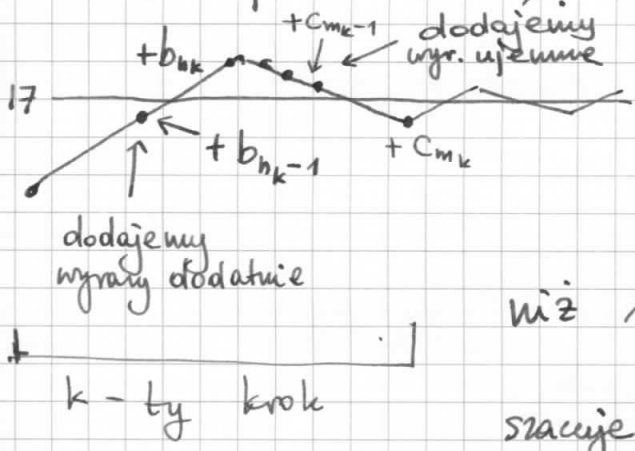 +c_{m_k-1}
dodajemy
wyr. ujemne
+b_{n_k}
17
+b_{n_k-1}
+c_{m_k}
dodajemy
wyrazy dodatnie
niż
k-ty krok
szacuje